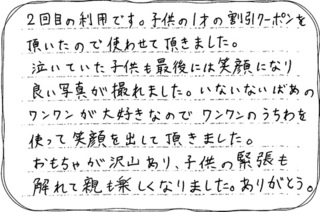 2回目の利用です。子供の1才の割引クーポンを
頂いたので使わせて頂きました。
泣いていた子供も最後には笑顔になり
良い写真が撮れました。いないないばあの
ワンワンが大好きなので ワンワンのうちわを
使って笑顔を出して頂きました。
おもちゃが沢山あり、子供の緊張も
解れて親も楽しくなりました。ありがとう。